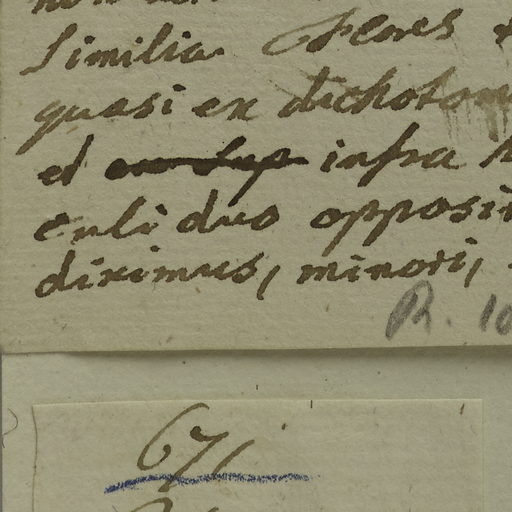 similia Flores
quasi ex dichotom
et infra
culi duo opposit
diximus, minori,
R. 10
671